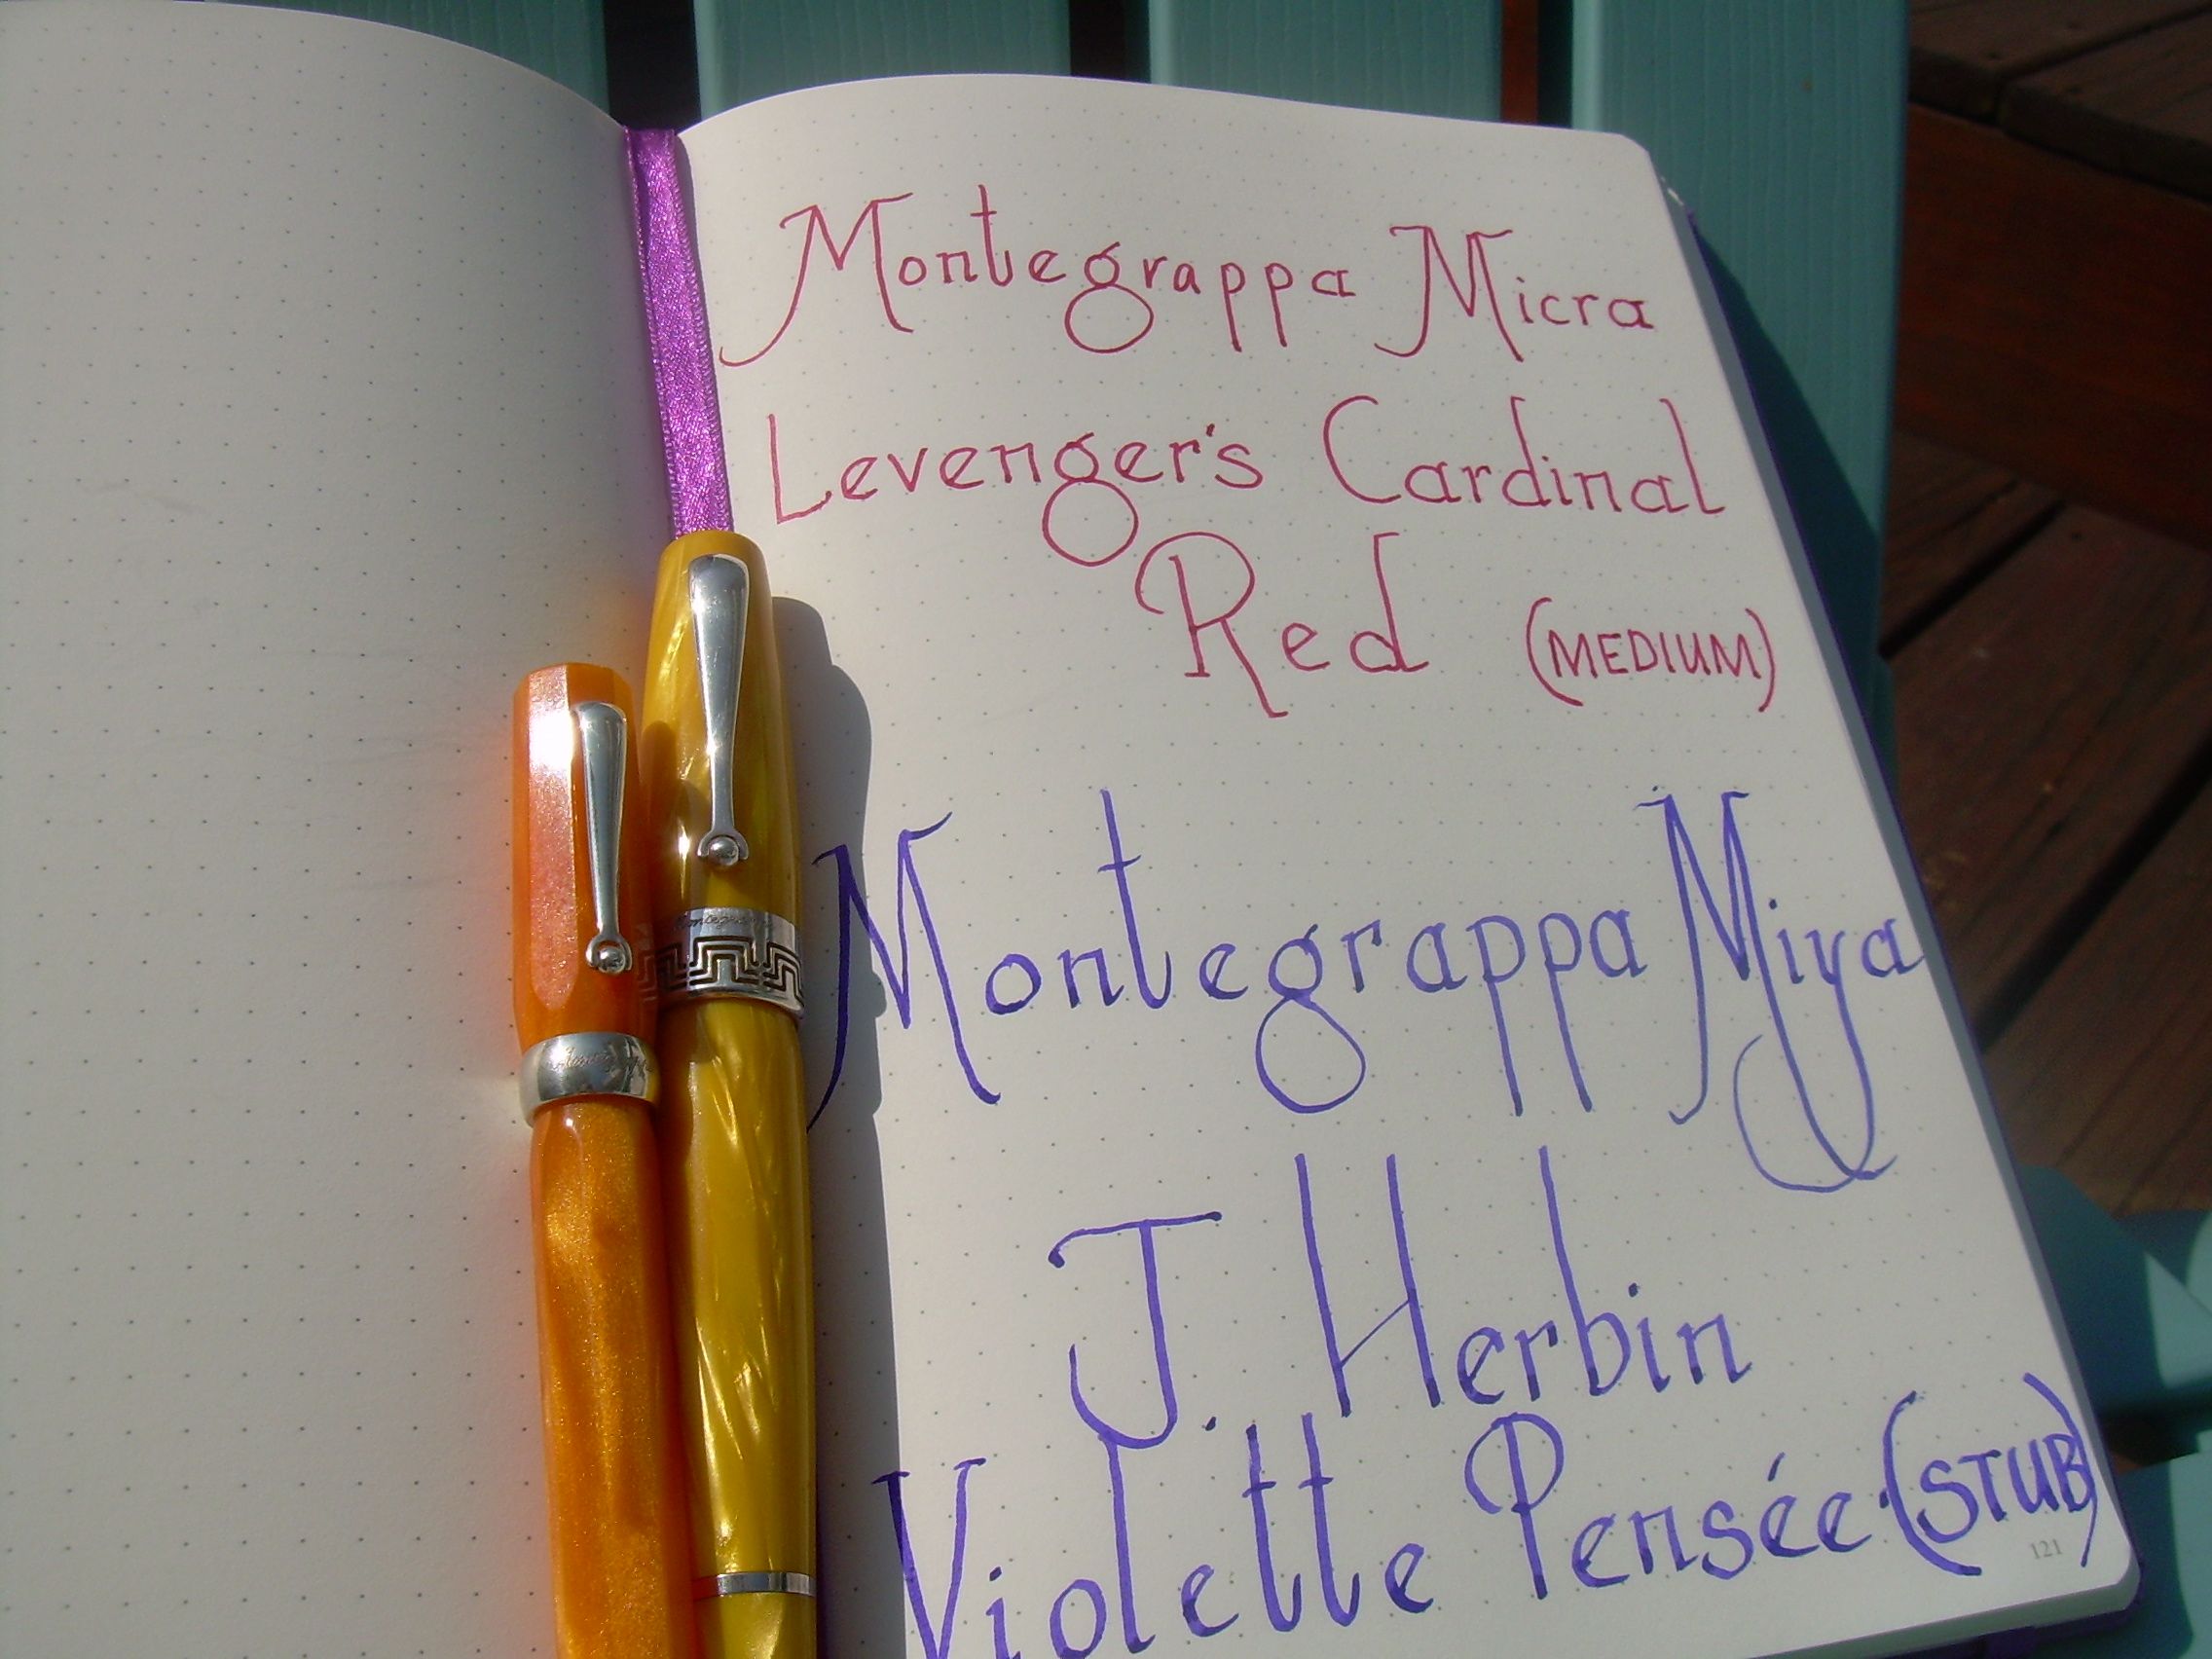 Montegrappa Micra
Levenger's Cardinal
Red (MEDIUM)
Montegrappa Miya
J. Herbin
Violette Pensée (STUB)
121
Montegrappa